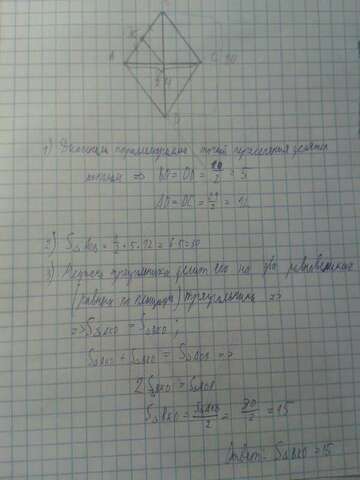 K
A
C
O
D
1) Диагонали параллелограмма точкой пересечения делятся
пополам ⇒ BO = OD = 10/2 = 5
AO = OC = 24/2 = 12
2) S△BCO = 1/2 · 5 · 12 = 6 · 5 = 30
3) Медиана треугольника делит его на два равновеликих
(равных по площади) треугольника =>
=> S△AKO = S△BKO ;
S△AKO + S△BKO = S△AOB =>
2 S△BKO = S△AOB
S△BKO = S△AOB/2 = 30/2 = 15
Ответ: S△BKO = 15